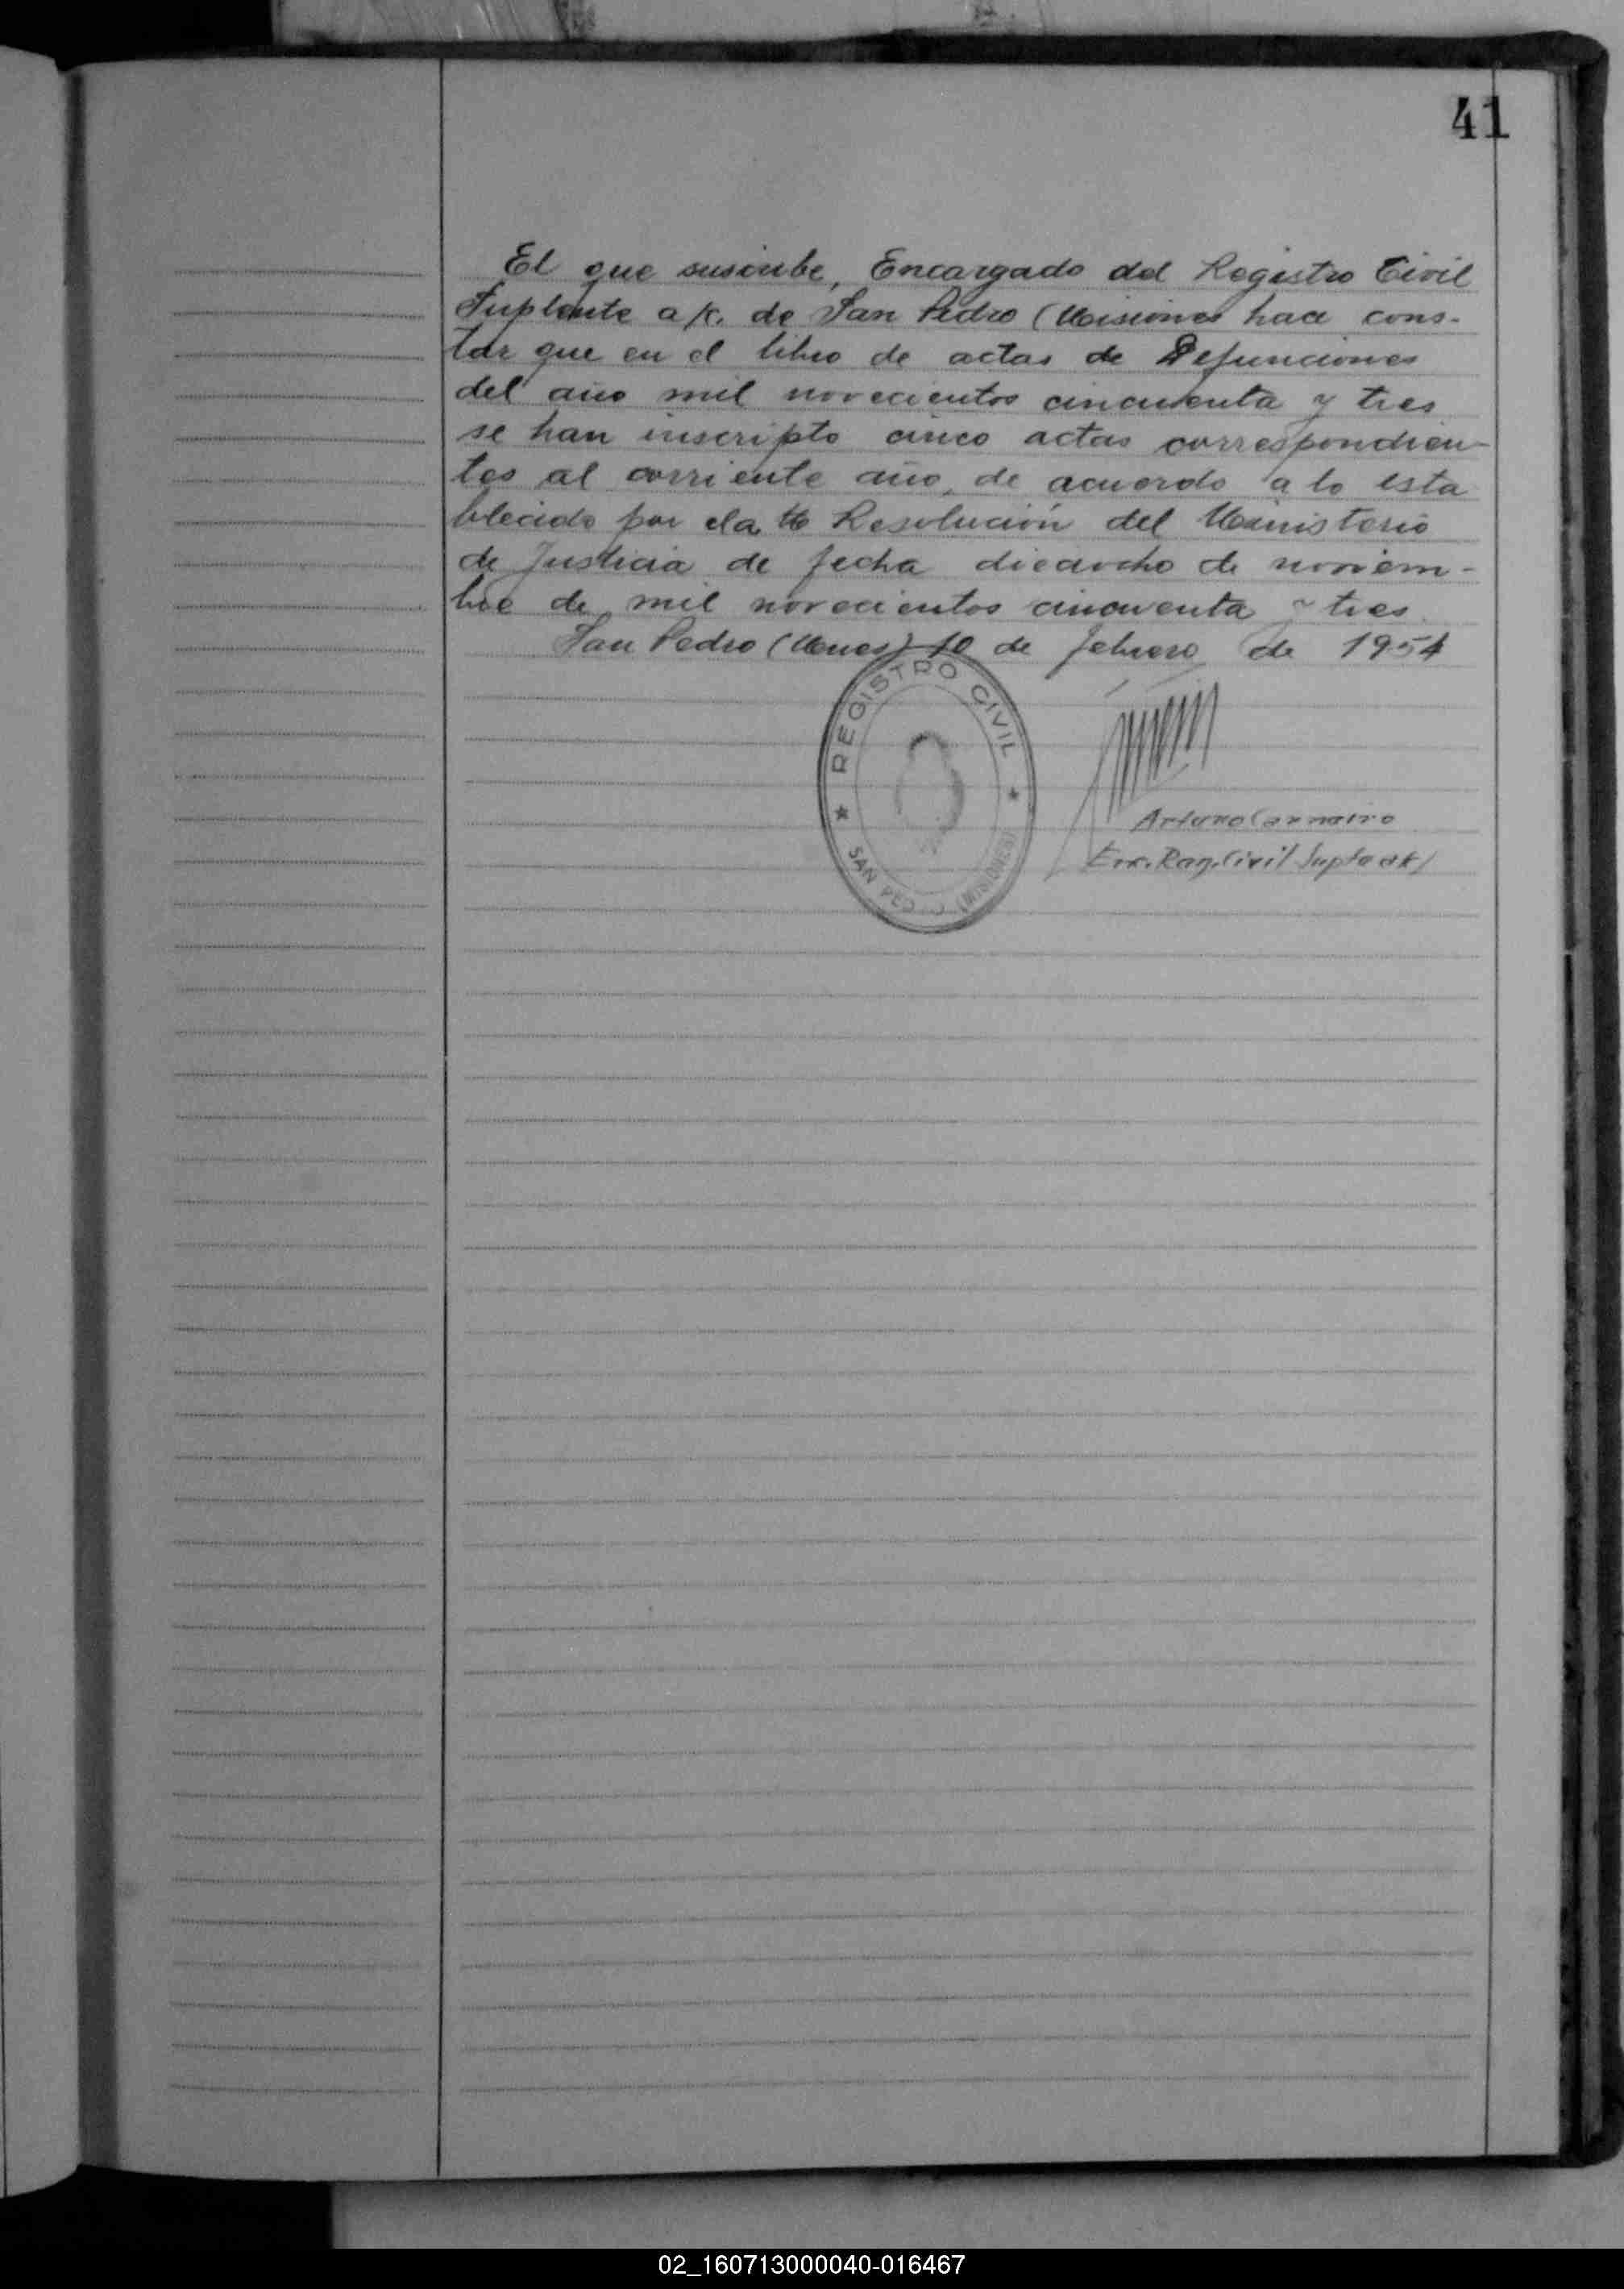 41
El que suscribe, Encargado del Registro Civil
Suplente a/c. de San Pedro (Misiones hace cons-
tar que en el libro de actas de Defunciones
del año mil novecientos cincuenta y tres
se han inscripto cinco actas correspondien-
tes al corriente año, de acuerdo a lo esta
blecido por la Resolución del Ministerio
de Justicia de fecha dieciocho de noviem-
bre de mil novecientos cincuenta y tres
San Pedro (Mnes) 10 de febrero de 1954
REGISTRO CIVIL
SAN PEDRO (MISIONES)
Arturo Carneiro
Enc. Reg. Civil Supte a/c/
02_160713000040-016467